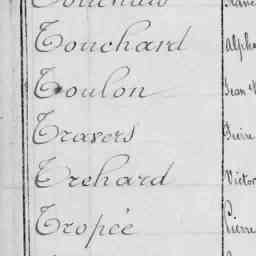 Touchard Alpho
Toulon Jean
Travers Pierre
Trehard Victor
Tropée Pierre